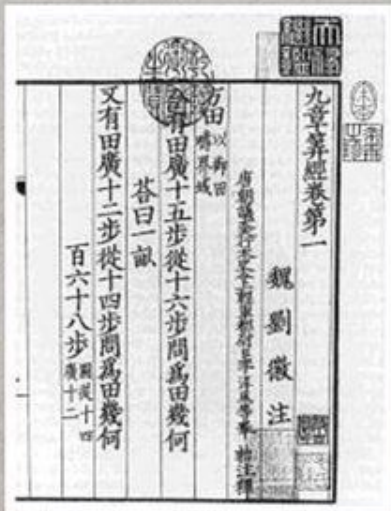 九章筭經卷第一
魏劉徽注
唐朝議大夫行太史令上輕車都尉臣李淳風等奉 注釋
方田以御田疇界域
今有田廣十五步從十六步問爲田幾何
荅曰一畝
又有田廣十二步從十四步問爲田幾何
百六十八步圖從十四廣十二